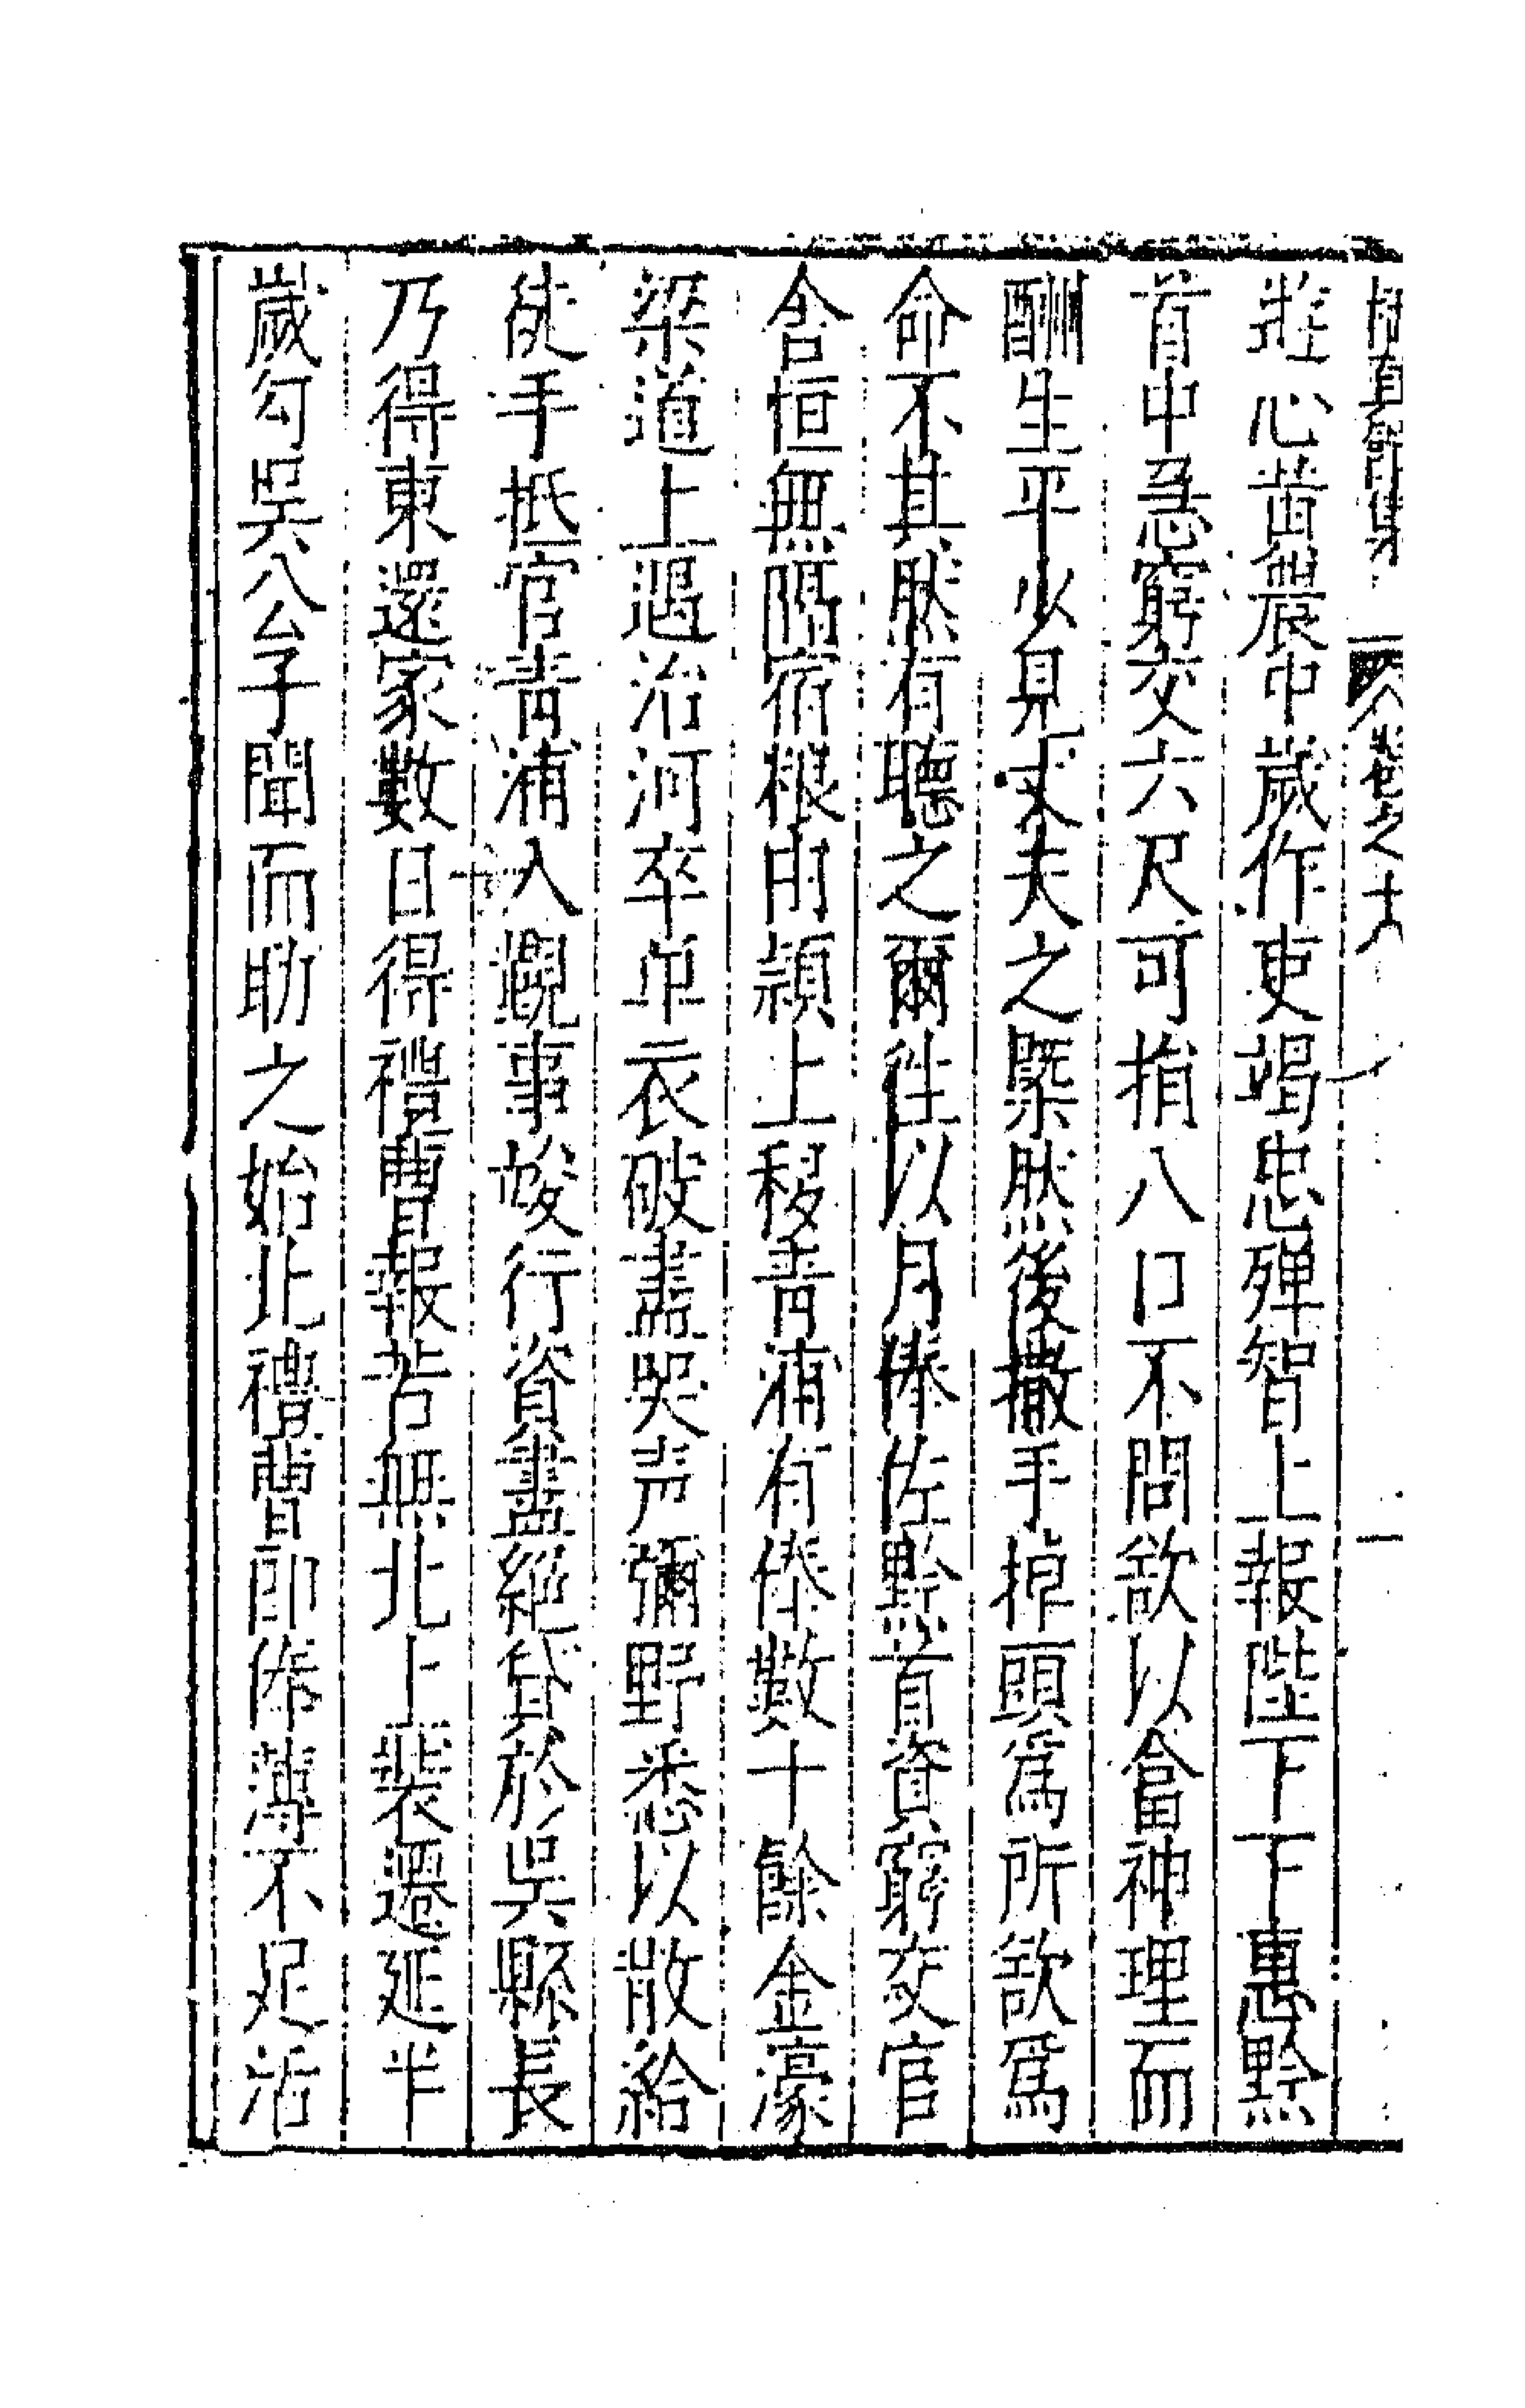 白眞齋集 卷之十六 一
壯心啬農中歲作吏竭忠殫智上報陛下下惠黔
首中急窮交六尺可捐八口不問欲以畣神理而
酬生平少見丈夫之槩然後撒手掉頭爲所欲爲
命不其然有聽之爾徃以月俸佐黔首資窮交官
舍恒無隔宿糧由潁上移青浦有俸數十餘金濠
梁道上遇治河卒卒衣破盡哭声彌野悉以散給
徒手抵官青浦入覲事竣行資盡絕貸於吳縣長
乃得東還家數日得禮曹報苦無北上裝遷延半
歲勾吳公子聞而助之始北禮曹郎俸薄不足活